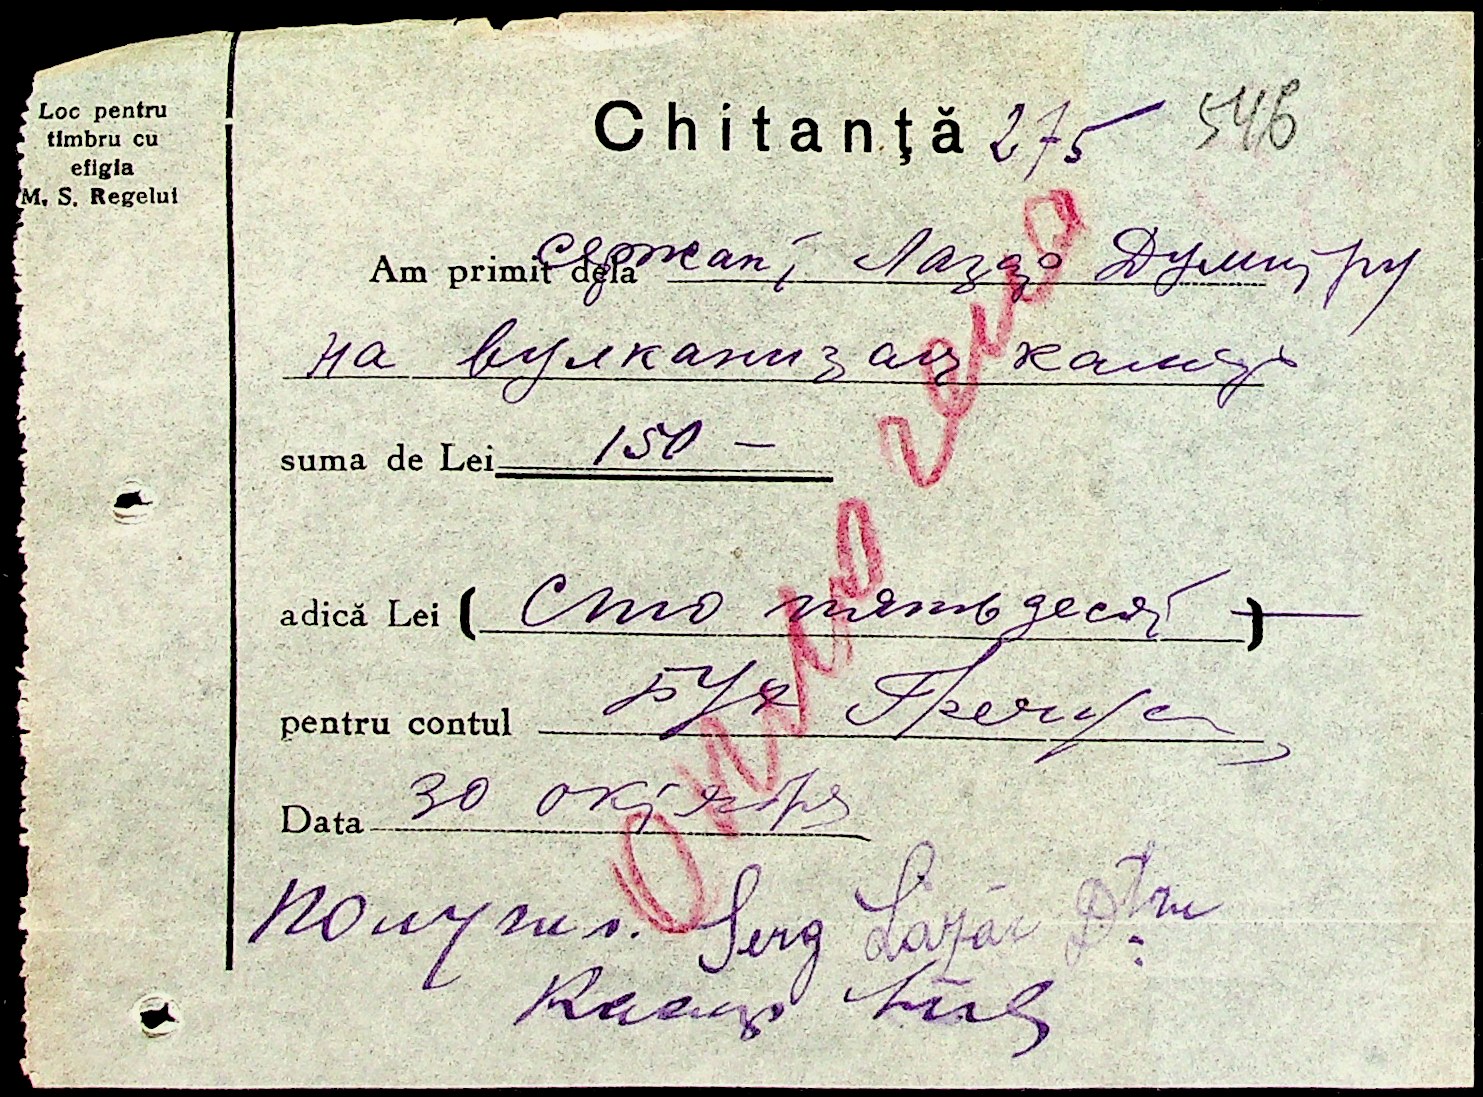 Loc pentru
timbru cu
efigia
M. S. Regelui
Chitanţă 275 546
Am primit dela сержант Лаззо Думитру
на вулканизац камер
suma de Lei 150 —
adică Lei (Сто пятьдесят)
pentru contul
Data 30 октября
Получил. Serg Lazăr Dtru